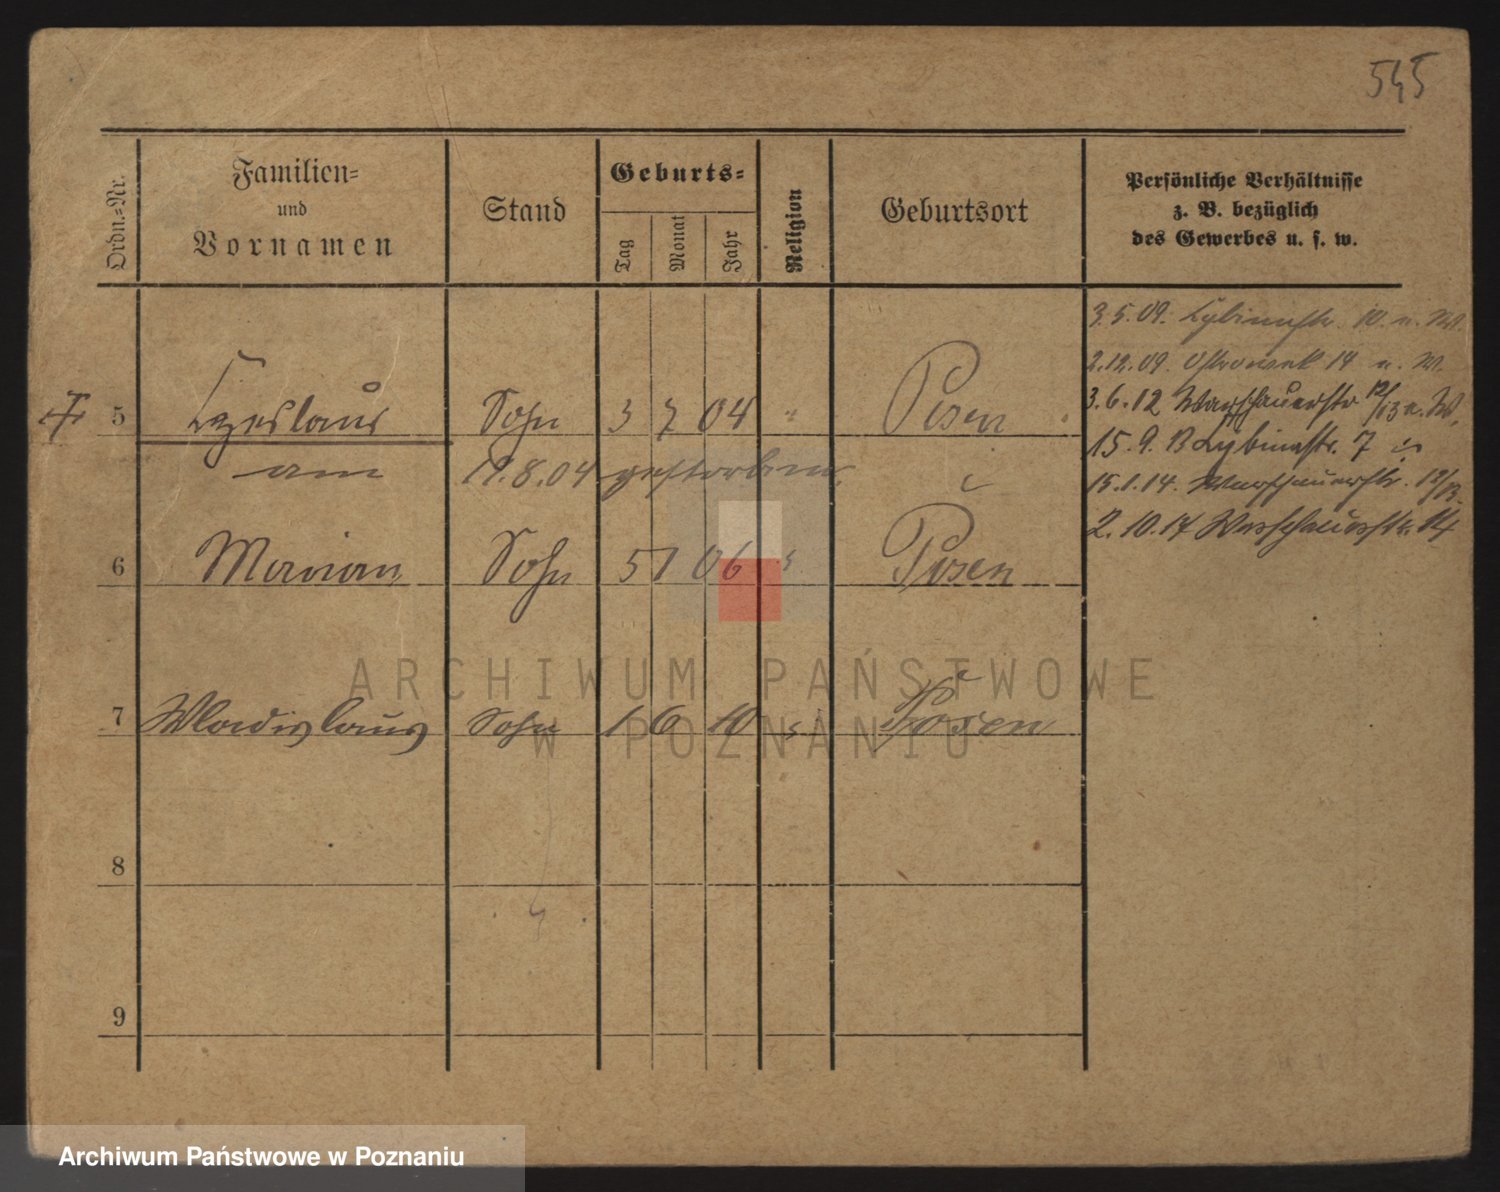 545
Ordn.-Nr.
Familien-
und
Vornamen
Stand
Geburts-
Tag Monat Jahr
Religion
Geburtsort
Persönliche Verhältnisse
z. B. bezüglich
des Gewerbes u. s. w.
5 Czeslaus Sohn 3 7 04 " Posen
am 19.8.04 gestorben.
6 Marian Sohn 5 1 06 " Posen
7 Wladislaus Sohn 1 6 10 Posen
8
9
3.5.09. Cybinastr. 10. u. W.
2.12.09. Ostrowek 14 u. W.
3.6.12 Warschauerstr 12/13 u. W.
15.9.13 Cybinastr. 7
15.1.14. Warschauerstr. 12/13.
2.10.17 Warschauerstr. 14
ARCHIWUM PAŃSTWOWE
W POZNANIU
Archiwum Państwowe w Poznaniu